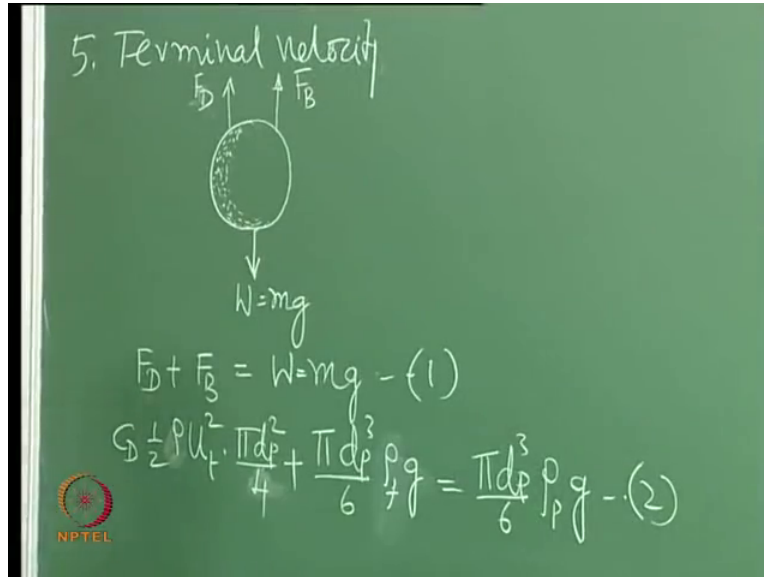 5. Terminal velocity
F_D F_B
W=mg
F_D + F_B = W=mg - (1)
C_D 1/2 ρ U_t^2 · πd_p^2/4 + πd_p^3/6 ρ_f g = πd_p^3/6 ρ_p g - (2)
NPTEL